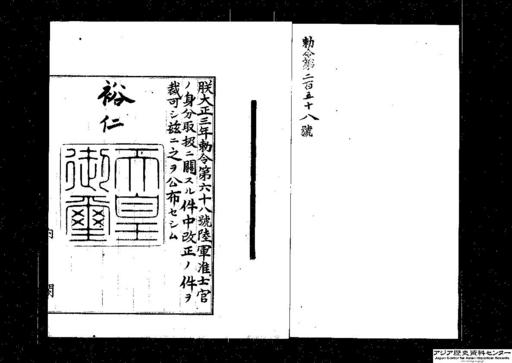 勅令第二百五十八號
朕大正三年勅令第六十八號陸軍准士官
ノ身分取扱ニ關スル件中改正ノ件ヲ
裁可シ玆ニ之ヲ公布セシム
裕仁
天皇
御璽
内閣
アジア歴史資料センター
Japan Center for Asian Historical Records